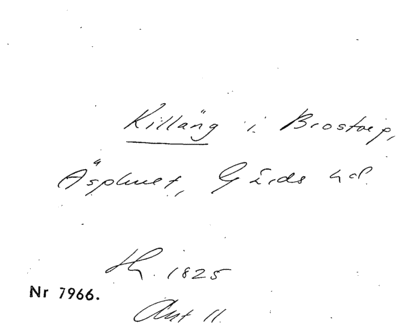 Killäng i Brostorp,
Äsphult, Gärds hd.
Sk. 1825
Nr 7966.
Akt 11.